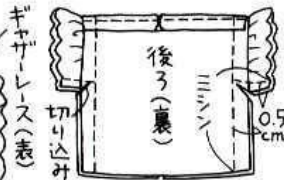 ギャザーレース(表)
切り込み
後ろ(裏)
ミシン
0.5
cm